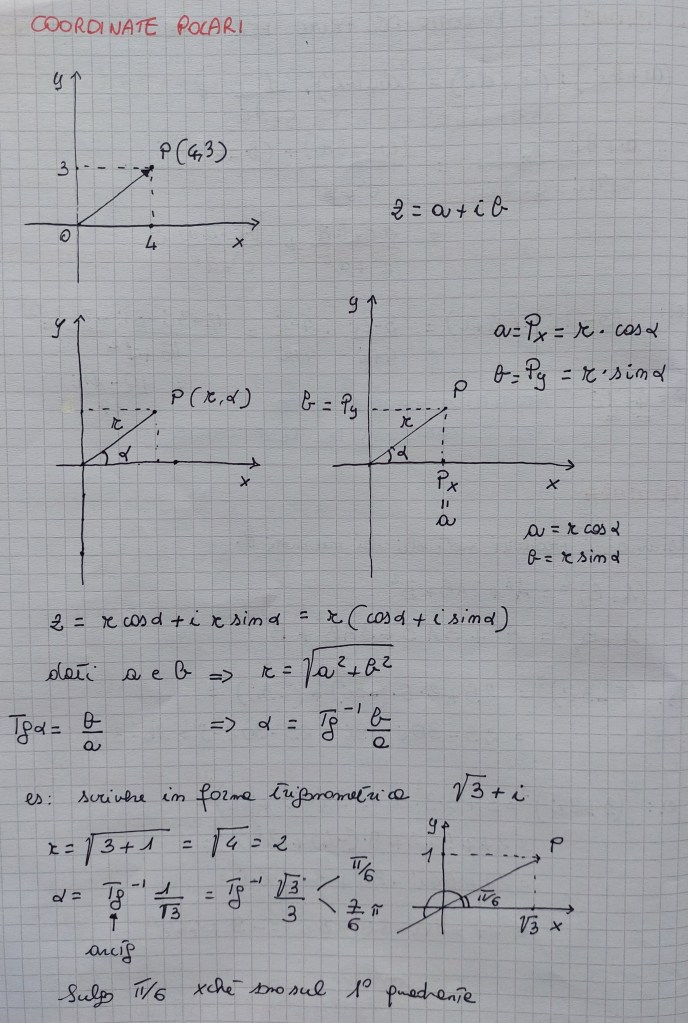 COORDINATE POLARI
y
P(4,3)
3
0
4
x
z = a + i b
y
P(r,α)
r
α
x
y
b = Py
P
r
α
Px
x
=
a
a = Px = r · cosα
b = Py = r · sinα
a = r cosα
b = r sinα
z = r cosα + i r sinα = r (cosα + i sinα)
dati a e b => r = √a² + b²
Tgα = b/a => α = Tg⁻¹ b/a
es: scrivere in forma trigonometrica √3 + i
r = √3+1 = √4 = 2
α = Tg⁻¹ 1/√3 = Tg⁻¹ √3/3 < π/6
7/6 π
↑
arctg
y
1
P
π/6
√3
x
Sulgo π/6 xché sono sul 1° quadrante